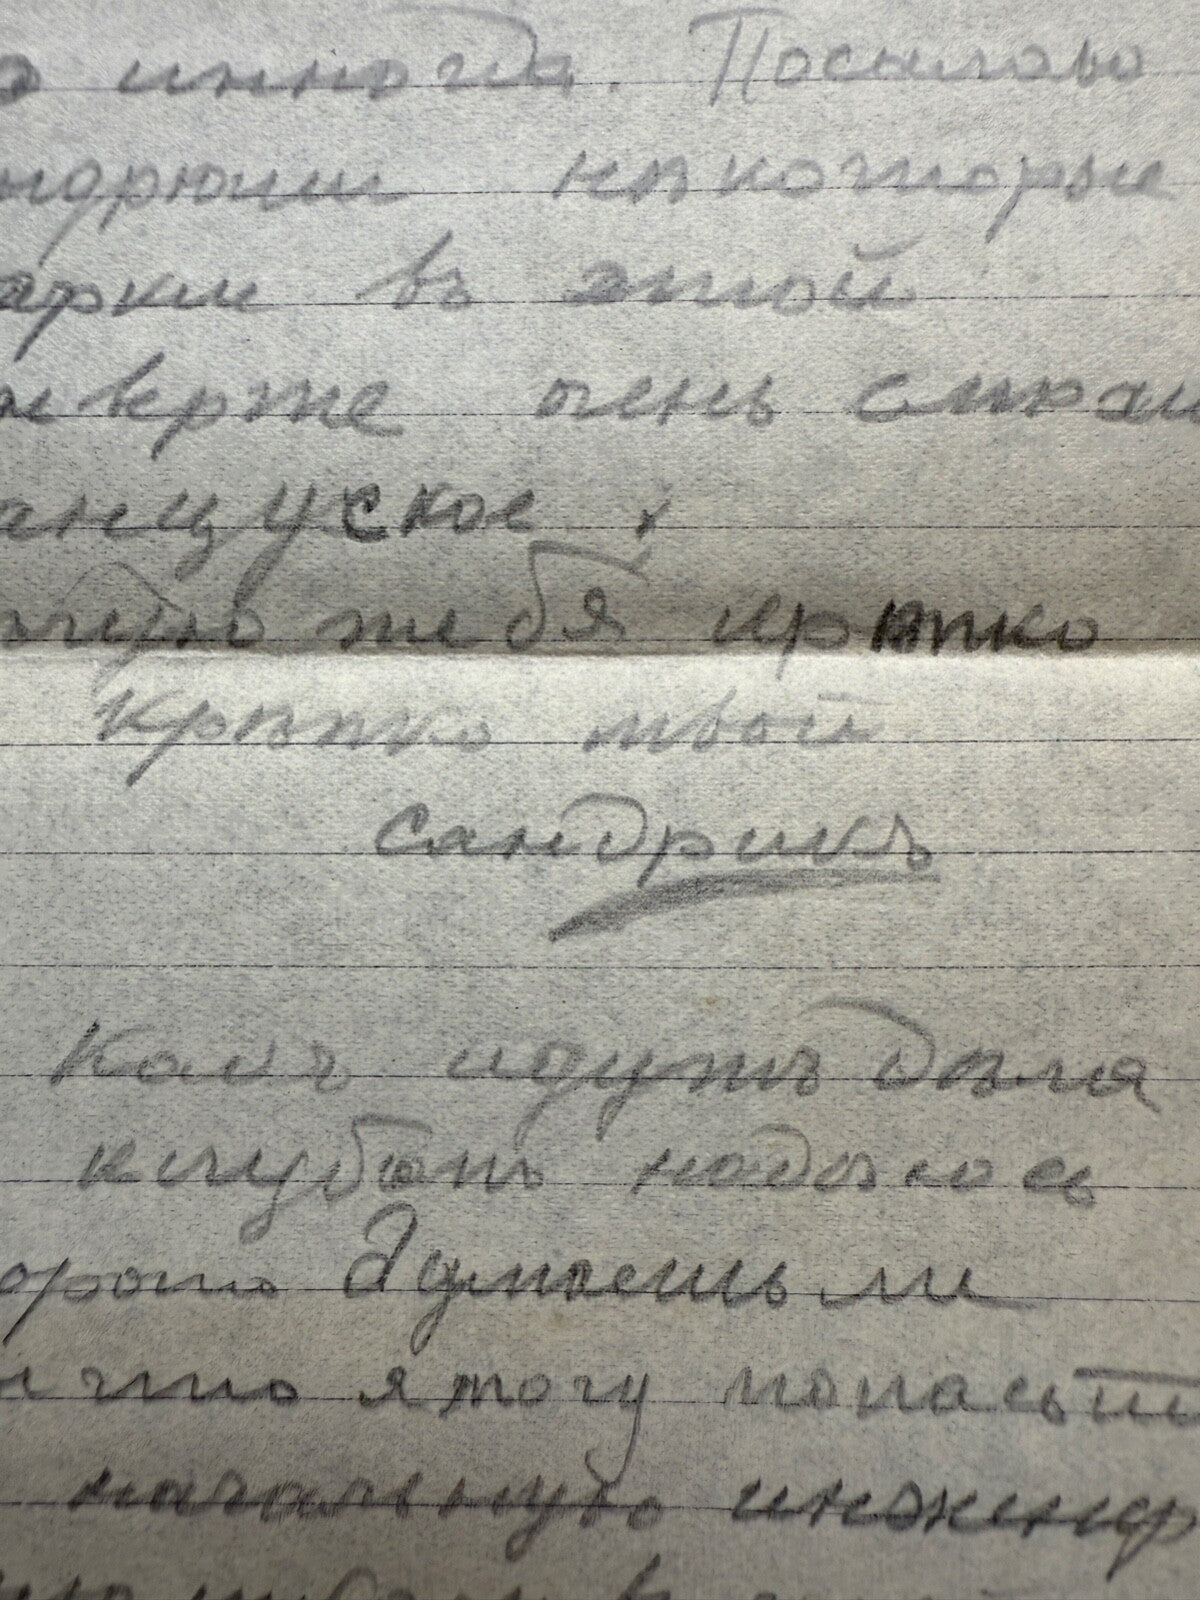 иногда. Посылаю
ндрюши нѣкоторые
арки въ этой
нверже очень
анцуское
тебя крѣпко
Крѣпко твой
Сандрикъ
Какъ идутъ дѣла
клубомъ надѣюсь
орошо Думаешь ли
что я могу попасьть
начальную инженер